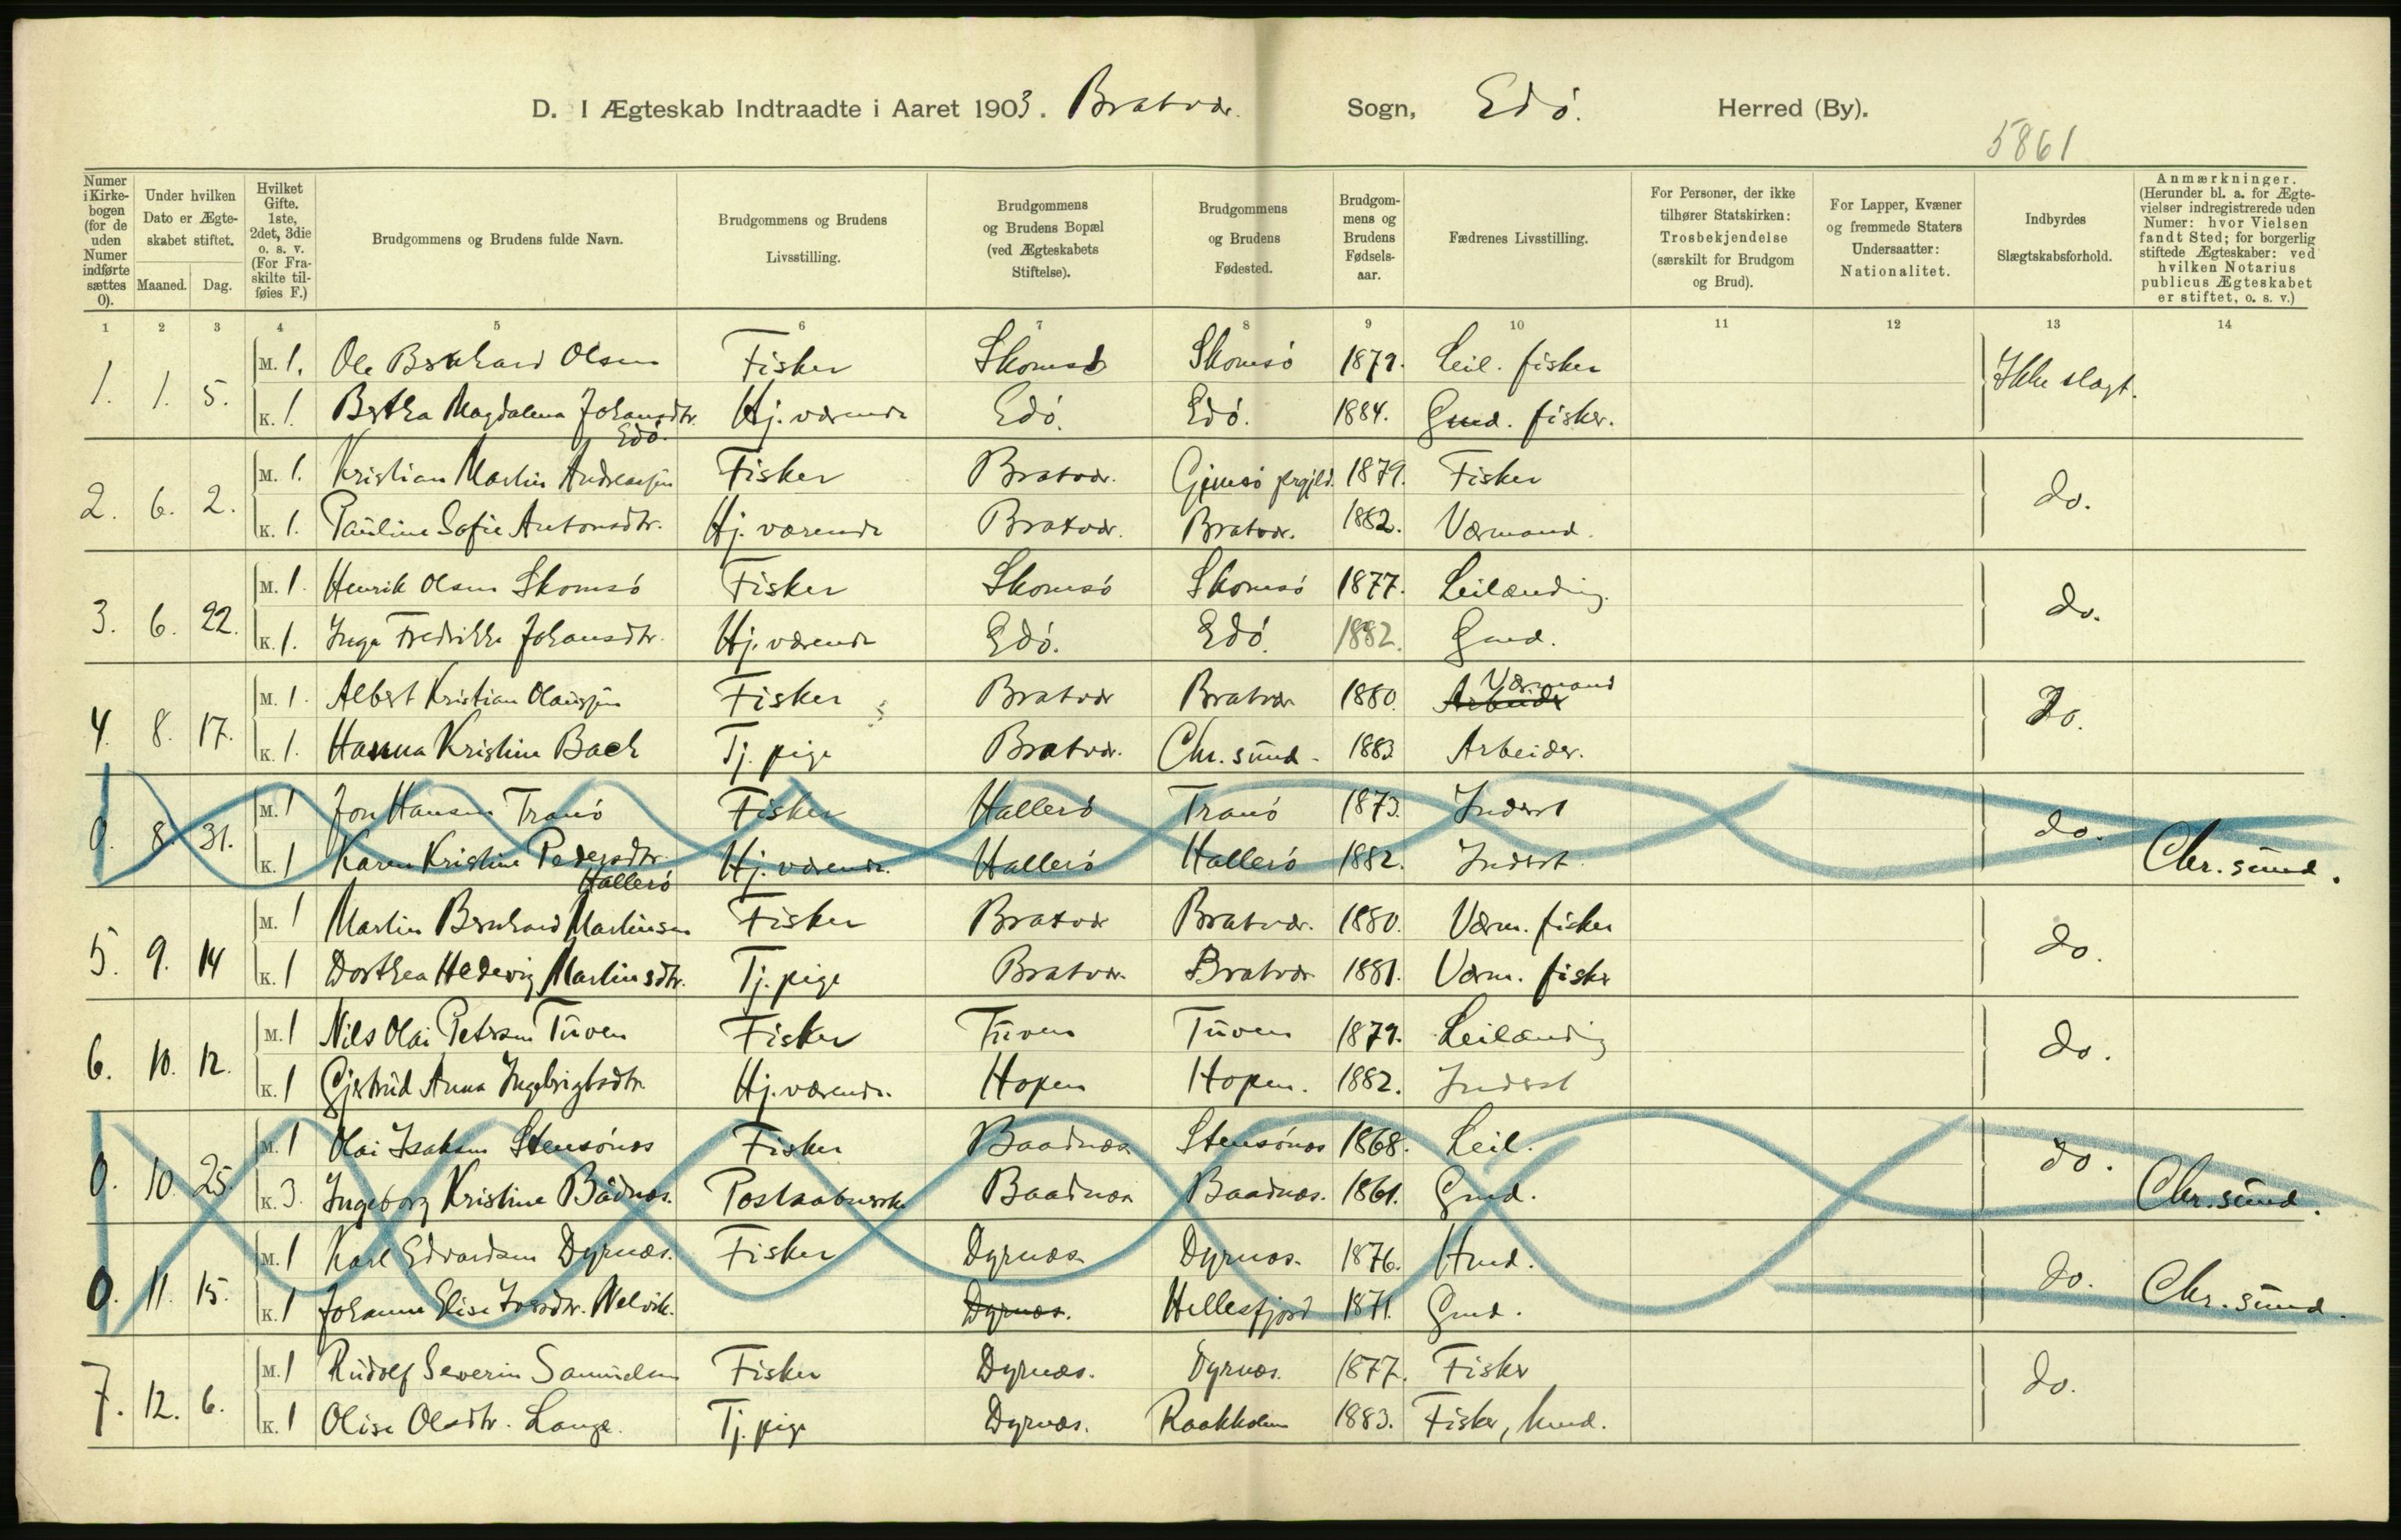 D. I Ægteskab Indtraadte i Aaret 1903. Bratvær. Sogn, Edø. Herred (By).
5861
Numer i Kirkebogen (for de uden Numer indførte sættes 0). Under hvilken Dato er Ægteskabet stiftet. Maaned. Dag. Hvilket Gifte. 1ste, 2det, 3die o. s. v. (For Fraskilte tilføies F.) Brudgommens og Brudens fulde Navn. Brudgommens og Brudens Livsstilling. Brudgommens og Brudens Bopæl (ved Ægteskabets Stiftelse). Brudgommens og Brudens Fødested. Brudgommens og Brudens Fødselsaar. Fædrenes Livsstilling. For Personer, der ikke tilhører Statskirken: Trosbekjendelse (særskilt for Brudgom og Brud). For Lapper, Kvæner og fremmede Staters Undersaatter: Nationalitet. Indbyrdes Slægtskabsforhold. Anmærkninger. (Herunder bl. a. for Ægtevielser indregistrerede uden Numer: hvor Vielsen fandt Sted; for borgerlig stiftede Ægteskaber: ved hvilken Notarius publicus Ægteskabet er stiftet, o. s. v.)
1 2 3 4 5 6 7 8 9 10 11 12 13 14
1. 1. 5. M. 1. Ole Bernhard Olsen Fisker Skomsø Skomsø 1879. Leil. fisker Ikke slægt.
K. 1. Bertha Magdalena Johansdtr. Edø. Hj. værende Edø. Edø. 1884. Gmd. fisker.
2. 6. 2. M. 1. Kristian Martin Andreassen Fisker Bratvær. Gimsø prgjld. 1879. Fisker do.
K. 1. Pauline Sofie Antonsdtr. Hj. værende Bratvær. Bratvær. 1882. Værmand.
3. 6. 22. M. 1. Henrik Olsen Skomsø Fisker Skomsø Skomsø 1877. Leilænding. do.
K. 1. Inga Fredrikke Johansdtr. Hj. værende Edø. Edø. 1882. Gmd.
4. 8. 17. M. 1. Albert Kristian Olaussen Fisker Bratvær Bratvær 1880. Arbeider Værmand do.
K. 1. Hanna Kristine Bach Tj. pige Bratvær. Chr. sund. 1883 Arbeider.
0. 8. 31. M. 1 Jon Hansen Tranø Fisker Hallerø Tranø 1873. Inderst do.
K. 1 Karen Kristine Pedersdtr. Hallerø Hj. værende. Hallerø Hallerø 1882. Inderst Chr. sund.
5. 9. 14 M. 1 Martin Bernhard Martinsen Fisker Bratvær Bratvær. 1880. Værm. fisker do.
K. 1 Dorthea Hedevig Martinsdtr. Tj. pige Bratvær. Bratvær 1881. Værm. fisker
6. 10. 12. M. 1 Nils Olai Petersen Tuven Fisker Tuven Tuven 1879. Leilænding do.
K. 1 Gjertrud Anna Ingebrigtsdtr. Hj. værende. Hopen Hopen. 1882. Inderst
0. 10. 25. M. 1 Olai Isaksen Stensønæs Fisker Baadnæs Stensønæs 1868. Leil. do.
K. 3. Ingeborg Kristine Bådnæs. Baadnæs Baadnæs. 1861. Gmd. Chr. sund.
0. 11. 15. M. 1 Karl Edvardsen Dyrnæs. Fisker Dyrnæs Dyrnæs. 1876. Hmd. do.
K. 1 Johanne Elise Welvik. Dyrnæs. Hellesfjord 1871. Gmd. Chr. sund.
7. 12. 6. M. 1 Rudolf Severin Samuelsen Fisker Dyrnæs. Dyrnæs. 1877. Fisker do.
K. 1 Olise Olsdtr. Lange. Tj. pige Dyrnæs. Raakholm 1883. Fisker, hmd.